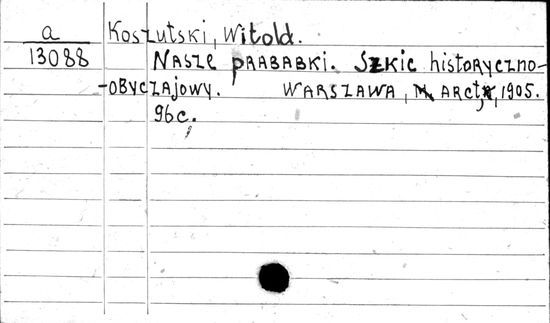 a
13088
Koszutski, Witold.
Nasze prababki. Szkic historyczno-
-obyczajowy. Warszawa, M. Arct, 1905.
96 c.